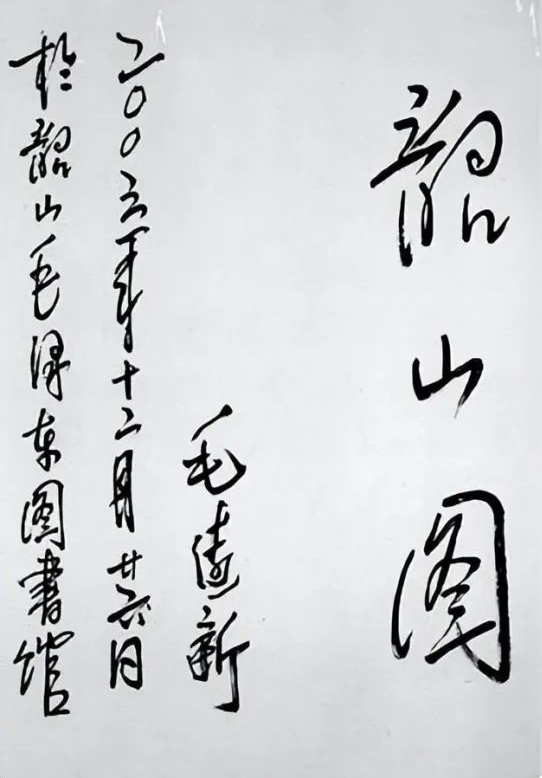 韶山图
毛遠新
二〇〇六年十二月廿六日
於韶山毛泽东图書馆